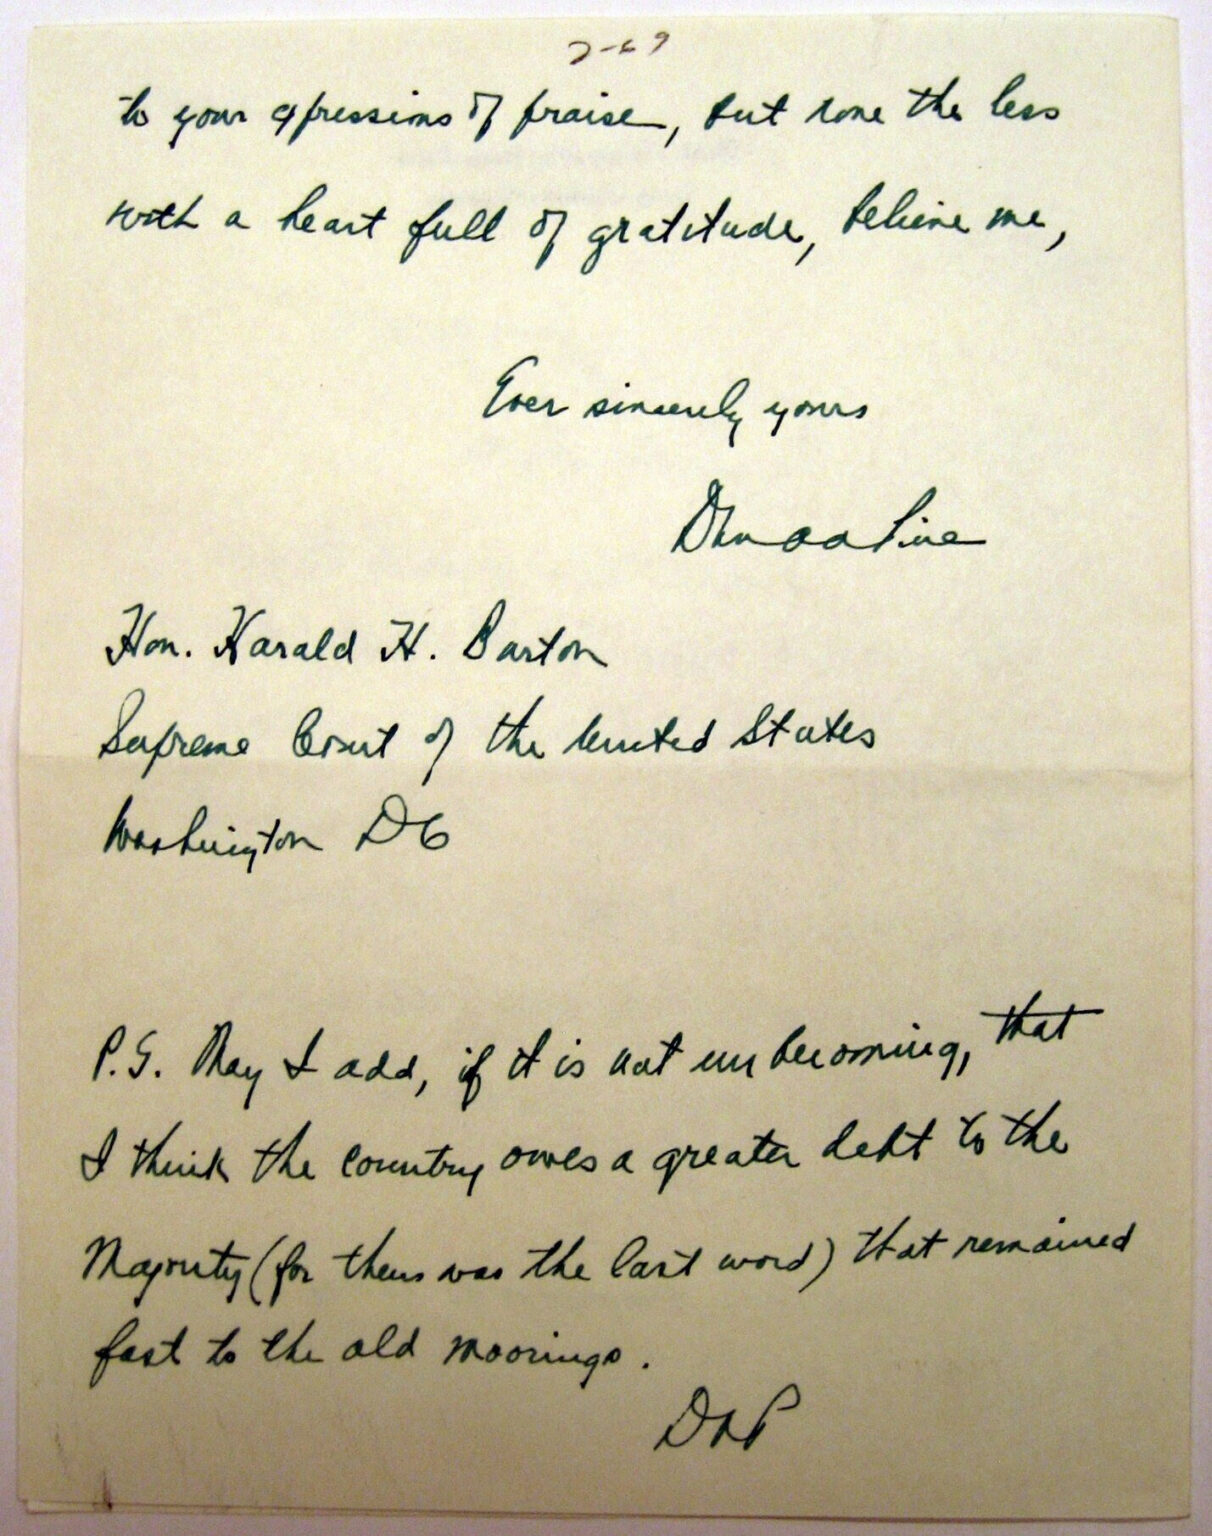 2-69
to your expressions of praise, but none the less
with a heart full of gratitude, believe me,
Ever sincerely yours
David A Pine
Hon. Harald H. Burton
Supreme Court of the United States
Washington DC
P.S. May I add, if it is not unbecoming, that
I think the country owes a greater debt to the
Majority (for theirs was the last word) that remained
fast to the old moorings.
DAP